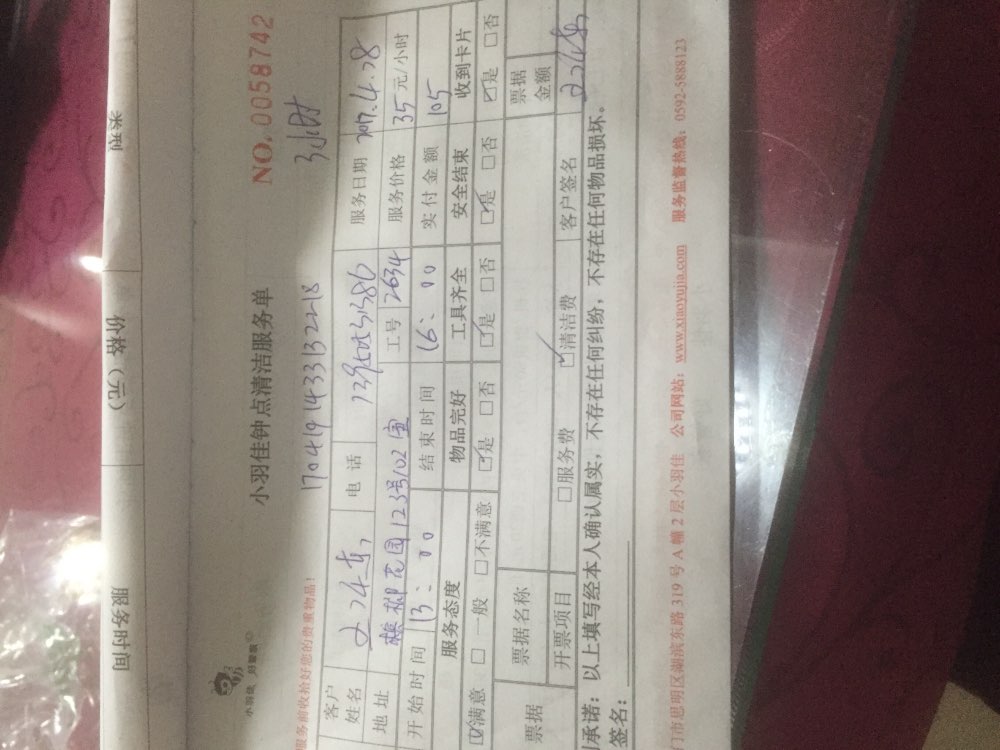 类型
价格（元）
服务时间
小羽佳 好管家
小羽佳钟点清洁服务单
NO. 0058742
服务前收拾好您的贵重物品！
1704191433132218
3小时
客户姓名
电话
服务日期 2017.4.28
地址 槟榔花园123号102室
工号 2634
服务价格 35元/小时
开始时间 13：00
结束时间 16：00
实付金额 105
服务态度
物品完好
工具齐全
安全结束
收到卡片
☑满意 □一般 □不满意
☑是 □否
☑是 □否
☑是 □否
☑是 □否
票据
票据名称
票据金额
开票项目
□服务费
☑清洁费
客户签名
承诺：以上填写经本人确认属实，不存在任何纠纷，不存在任何物品损坏。
签名：
门市思明区湖滨东路319号A幢2层小羽佳 公司网站：www.xiaoyujia.com 服务监督热线：0592-5888123